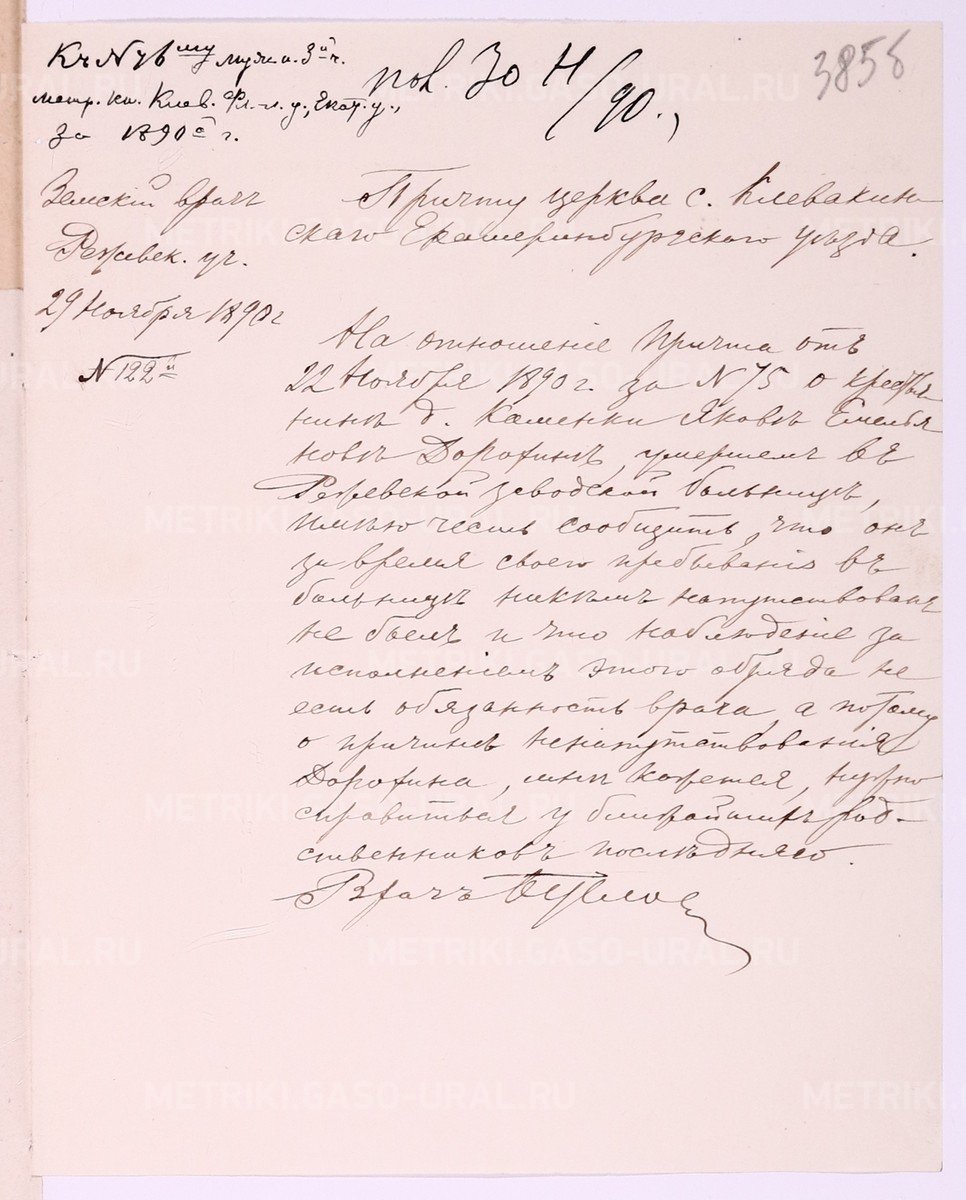 Къ № 76му муж. п. 3й ч.
метр. кн. Клев. Фл.-л. ц., Екат. у.,
за 1890й г.
пол. 30 Н/90.,
3858
Земскій врачъ
Режевск. уч.
29 Ноября 1890 г
№ 122й
Причту церкви с. Клевакин-
скаго Екатеринбургскаго уѣзда.
На отношеніе Причта отъ
22 Ноября 1890 г. за № 75 о крестья
нинѣ д. Каменки Яковѣ Емелья
новѣ Дорохинѣ, умершемъ въ
Режевской заводской больницѣ,
имѣю честь сообщить, что онъ
за время своего пребыванія въ
больницѣ никѣмъ напутствованъ
не былъ и что наблюденіе за
исполненіемъ этого обряда не
есть обязанность врача, а потому
о причинѣ ненапутствованія
Дорохина, мнѣ кажется, нужно
справиться у ближайшихъ род-
ственниковъ послѣдняго.
Врачъ
METRIKI.GASO-URAL.RU